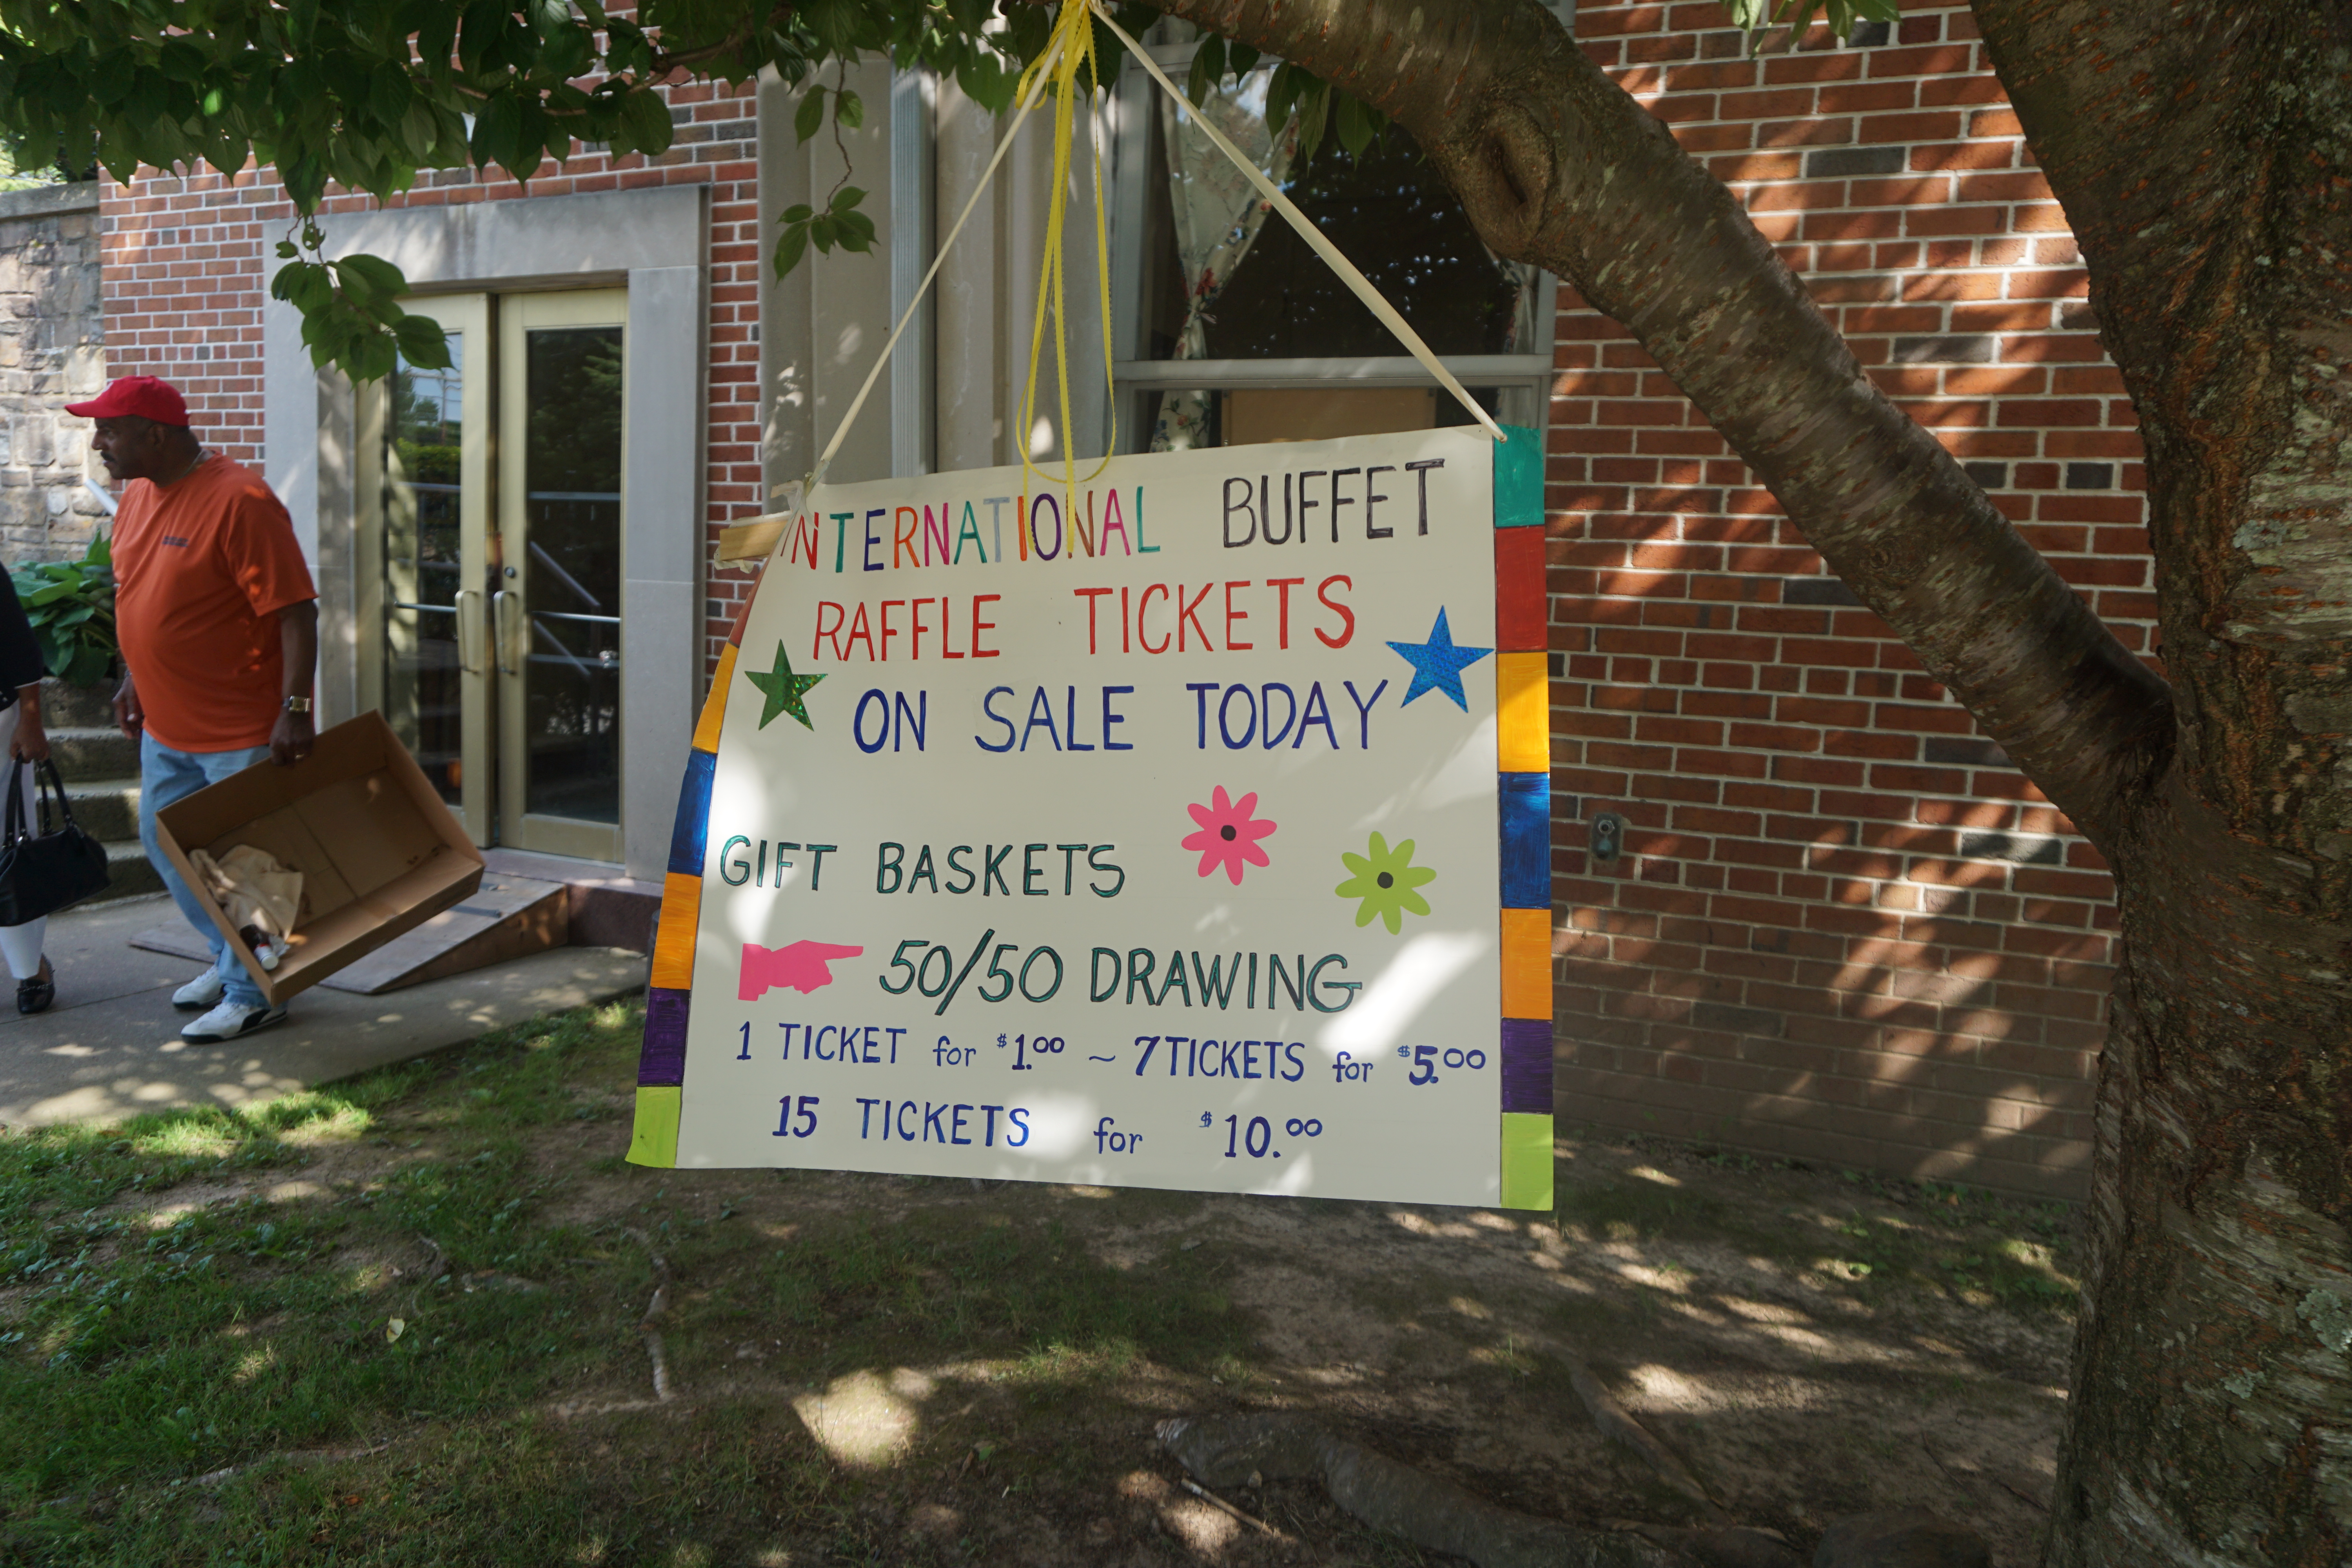 INTERNATIONAL BUFFET
RAFFLE TICKETS
ON SALE TODAY
GIFT BASKETS
50/50 DRAWING
1 TICKET for $1.00 ~ 7 TICKETS for $5.00
15 TICKETS for $10.00